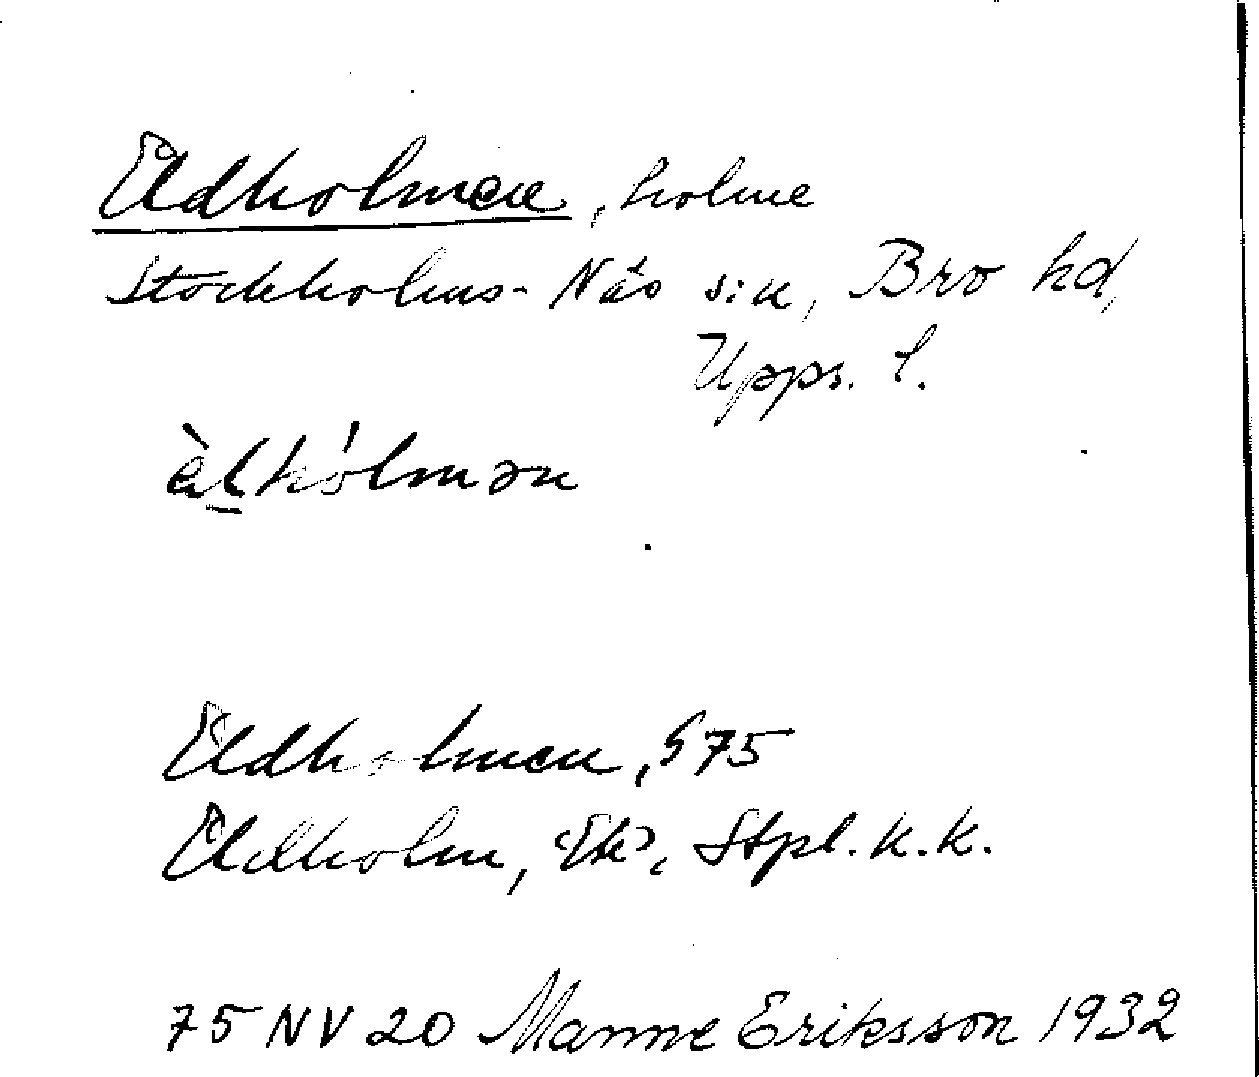 Eldholmen, holme
Stockholms-Näs s:n, Bro hd,
Upps. l.
èl̲hólmən
Eldholmen, S 75
Eldholm, Ek, Stpl. k.k.
75 NV 20 Manne Eriksson 1932